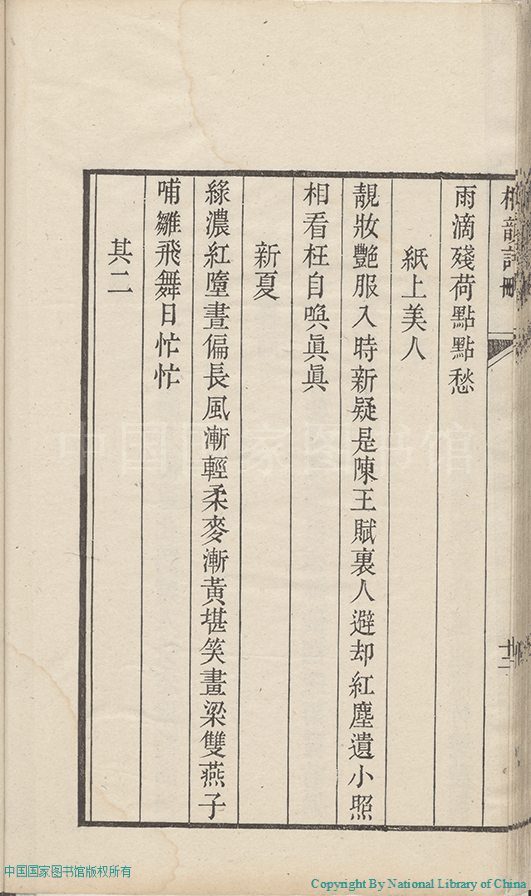 雨滴殘荷點點愁
紙上美人
靚妝艷服入時新疑是陳王賦裏人避却紅塵遺小照
相看枉自喚眞眞
新夏
綠濃紅墮晝偏長風漸輕柔麥漸黃堪笑畫梁雙燕子
哺雛飛舞日忙忙
其二
十二
中国国家图书馆
中国国家图书馆版权所有
Copyright By National Library of China